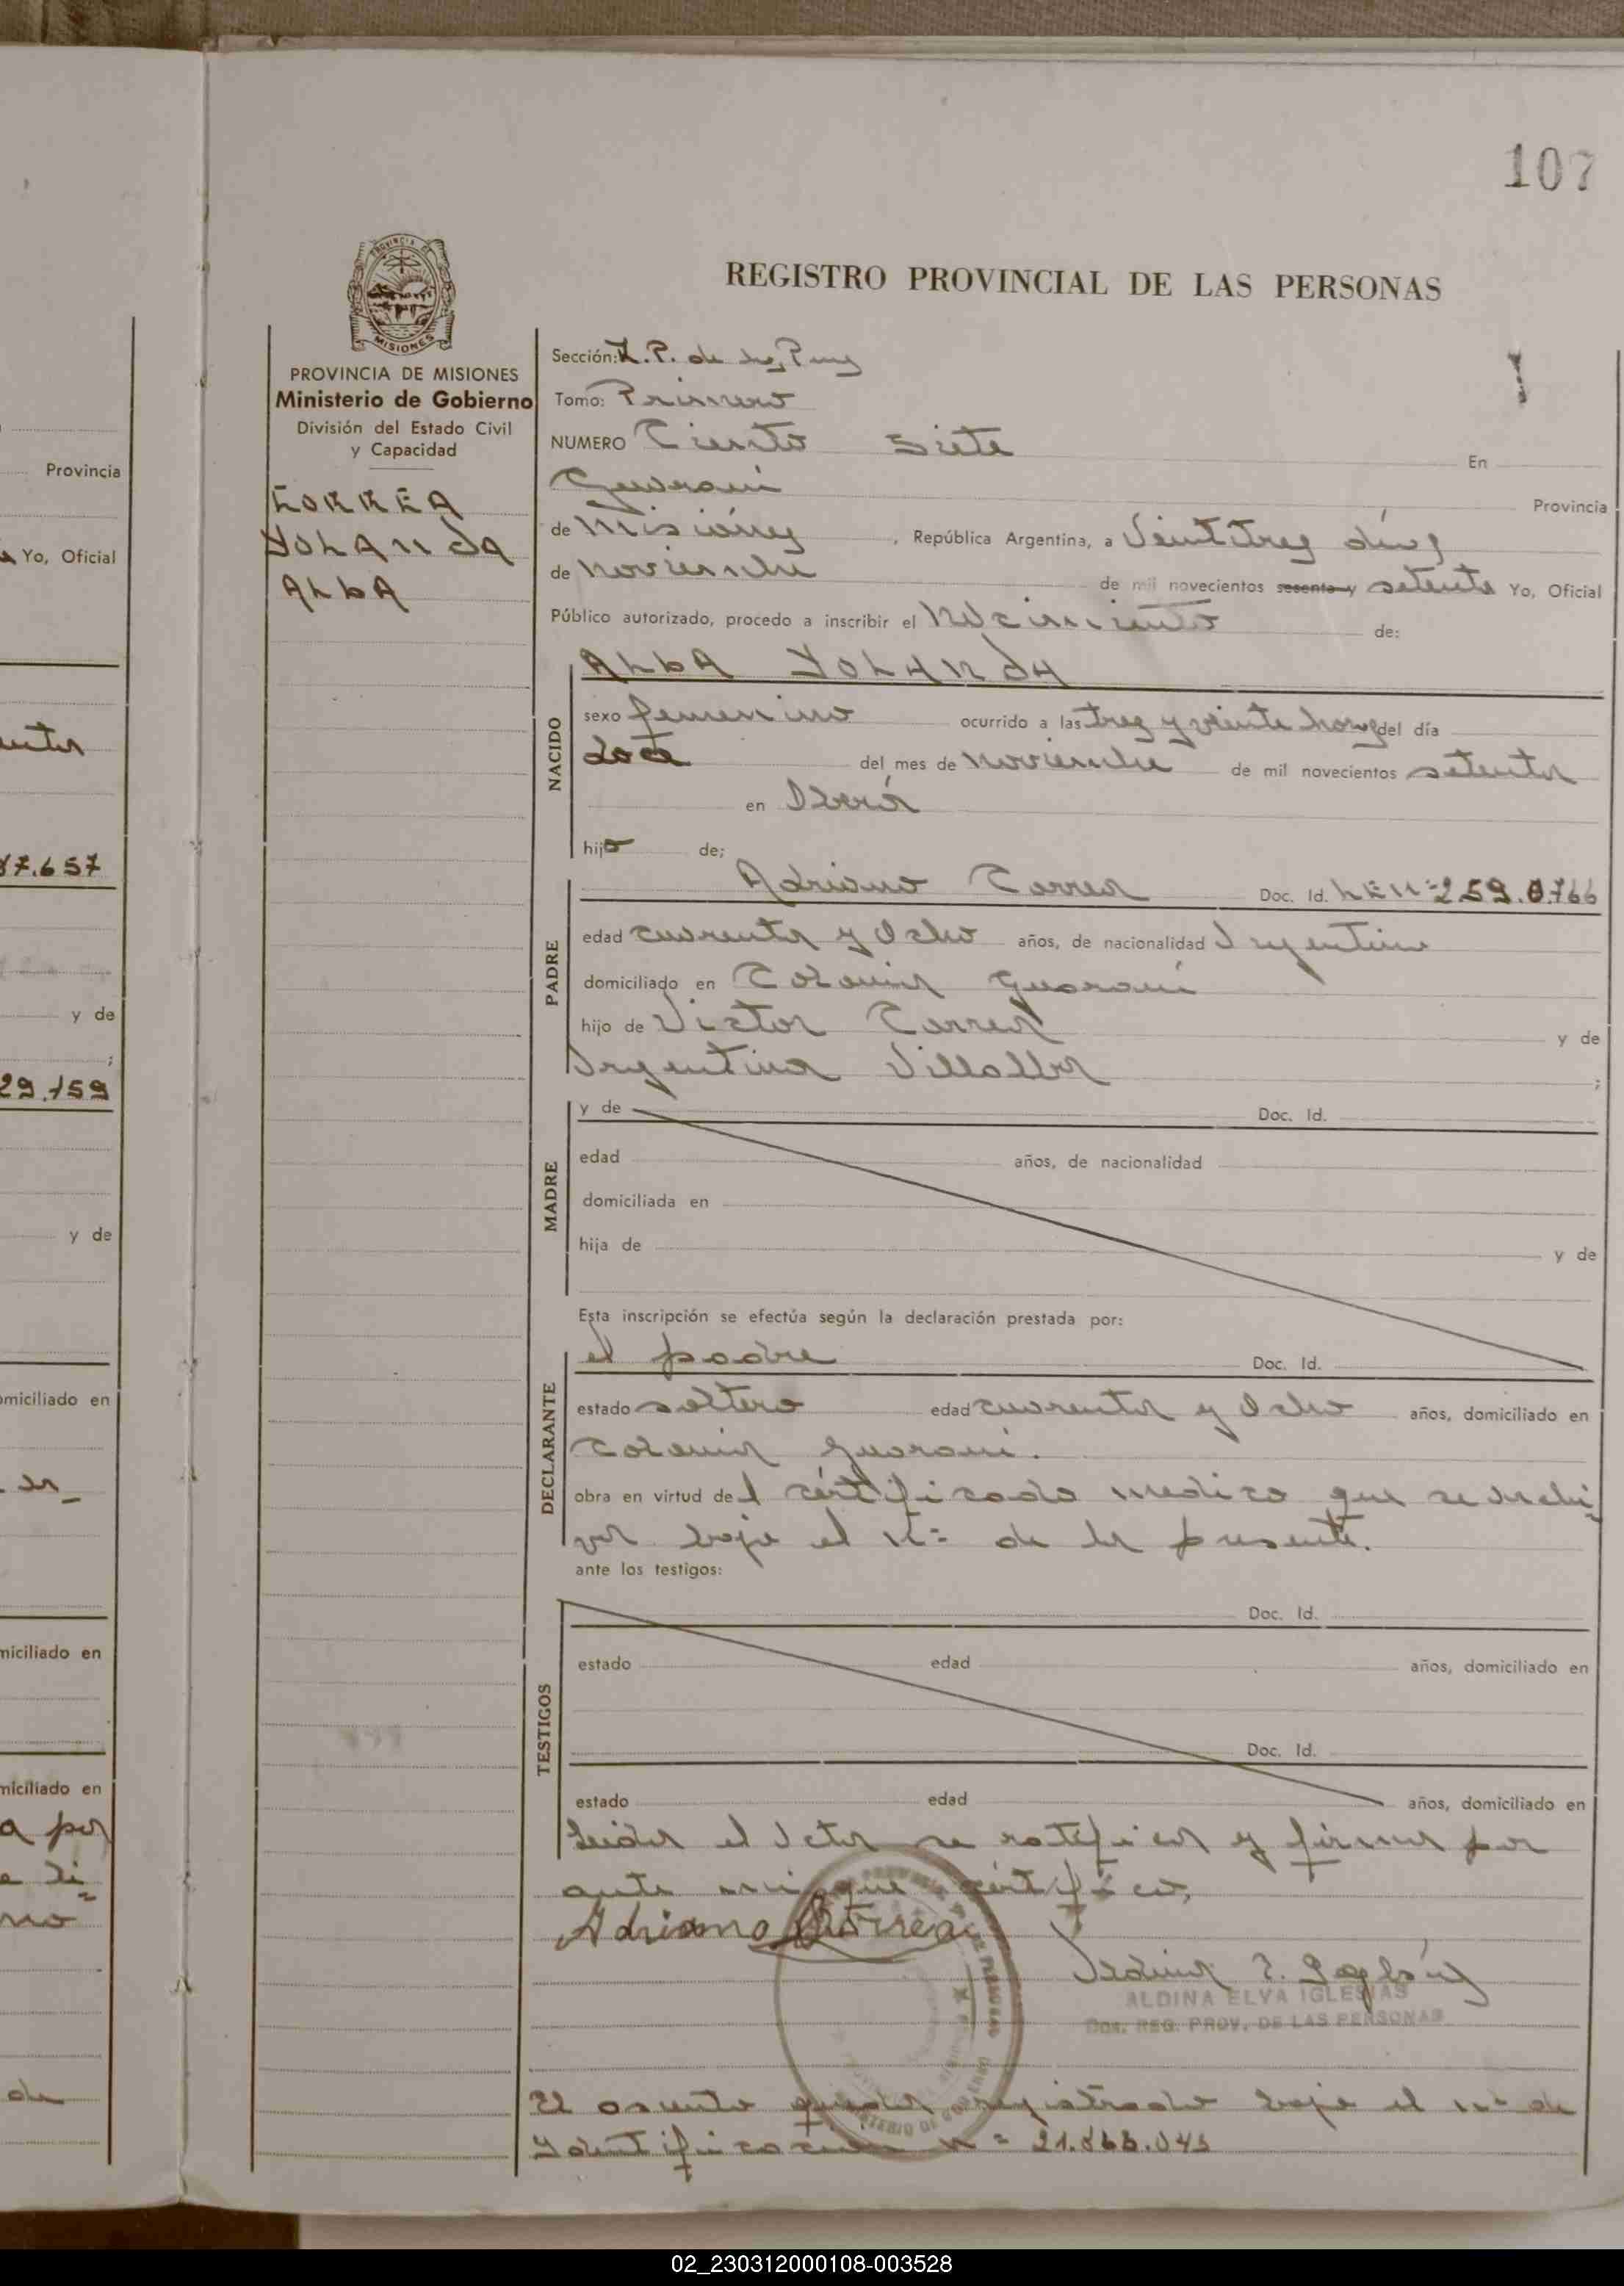 107
PROVINCIA DE
MISIONES
REGISTRO PROVINCIAL DE LAS PERSONAS
PROVINCIA DE MISIONES
Ministerio de Gobierno
División del Estado Civil
y Capacidad
CORREA
YOLANDA
ALBA
Sección: R.P. de las
Tomo: Primero
NUMERO Ciento Siete En
Guarani Provincia
de Misiones, República Argentina, a Veintitres días
de noviembre de mil novecientos sesenta y setenta Yo, Oficial
Público autorizado, procedo a inscribir el nacimiento de:
NACIDO
ALBA YOLANDA
sexo femenino ocurrido a las tres y veinte horas del día
doce del mes de noviembre de mil novecientos setenta
en Oberá
hija de;
PADRE
Adriano Correa Doc. Id. LE Nº 259.0766
edad cuarenta y Ocho años, de nacionalidad Argentino
domiciliado en Colonia Guarani
hijo de Victor Correa y de
Argentina Villalba ;
MADRE
y de Doc. Id.
edad años, de nacionalidad
domiciliada en
hija de y de
Esta inscripción se efectúa según la declaración prestada por:
DECLARANTE
el padre Doc. Id.
estado soltero edad cuarenta y Ocho años, domiciliado en
Colonia Guarani.
obra en virtud del certificado medico que se archi-
va bajo el Nº de la presente.
ante los testigos:
TESTIGOS
Doc. Id.
estado edad años, domiciliado en
Doc. Id.
estado edad años, domiciliado en
Leida el Acta se ratifica y firma por
ante mi que certifico.
Adriano Correa
ALDINA ELVA IGLESIAS
REG. PROV. DE LAS PERSONAS
El asiento queda registrado bajo el nº de
Identificacion nº
Provincia
Yo, Oficial
87.657
y de
;
29.159
y de
domiciliado en
domiciliado en
domiciliado en
a por
de
02_230312000108-003528